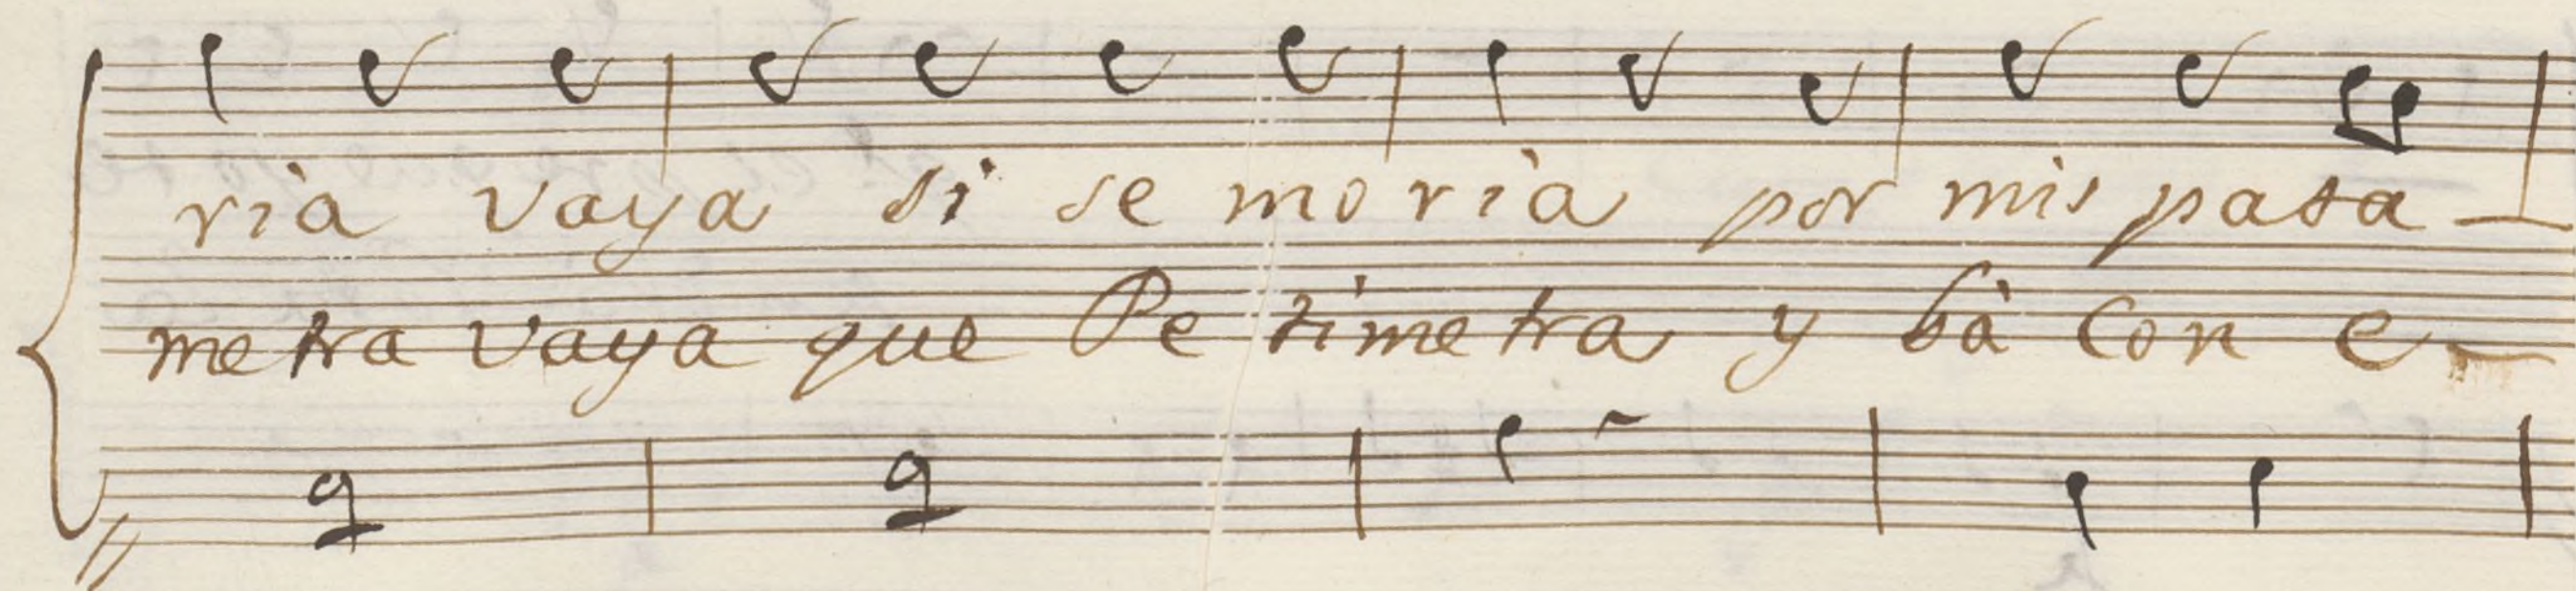 rìa vaya si se morìa por mis pata
metra vaya que Petimetra y bà con e